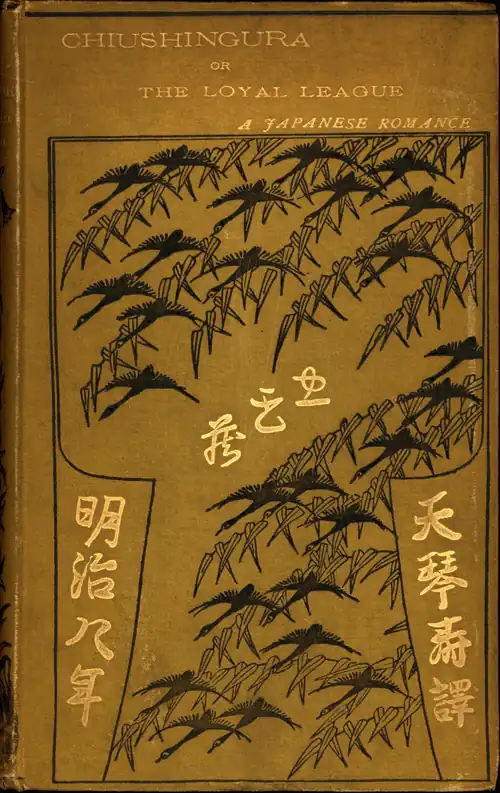 CHIUSHINGURA
OR
THE LOYAL LEAGUE
A JAPANESE ROMANCE
忠臣蔵
天琴寿譯
明治八年